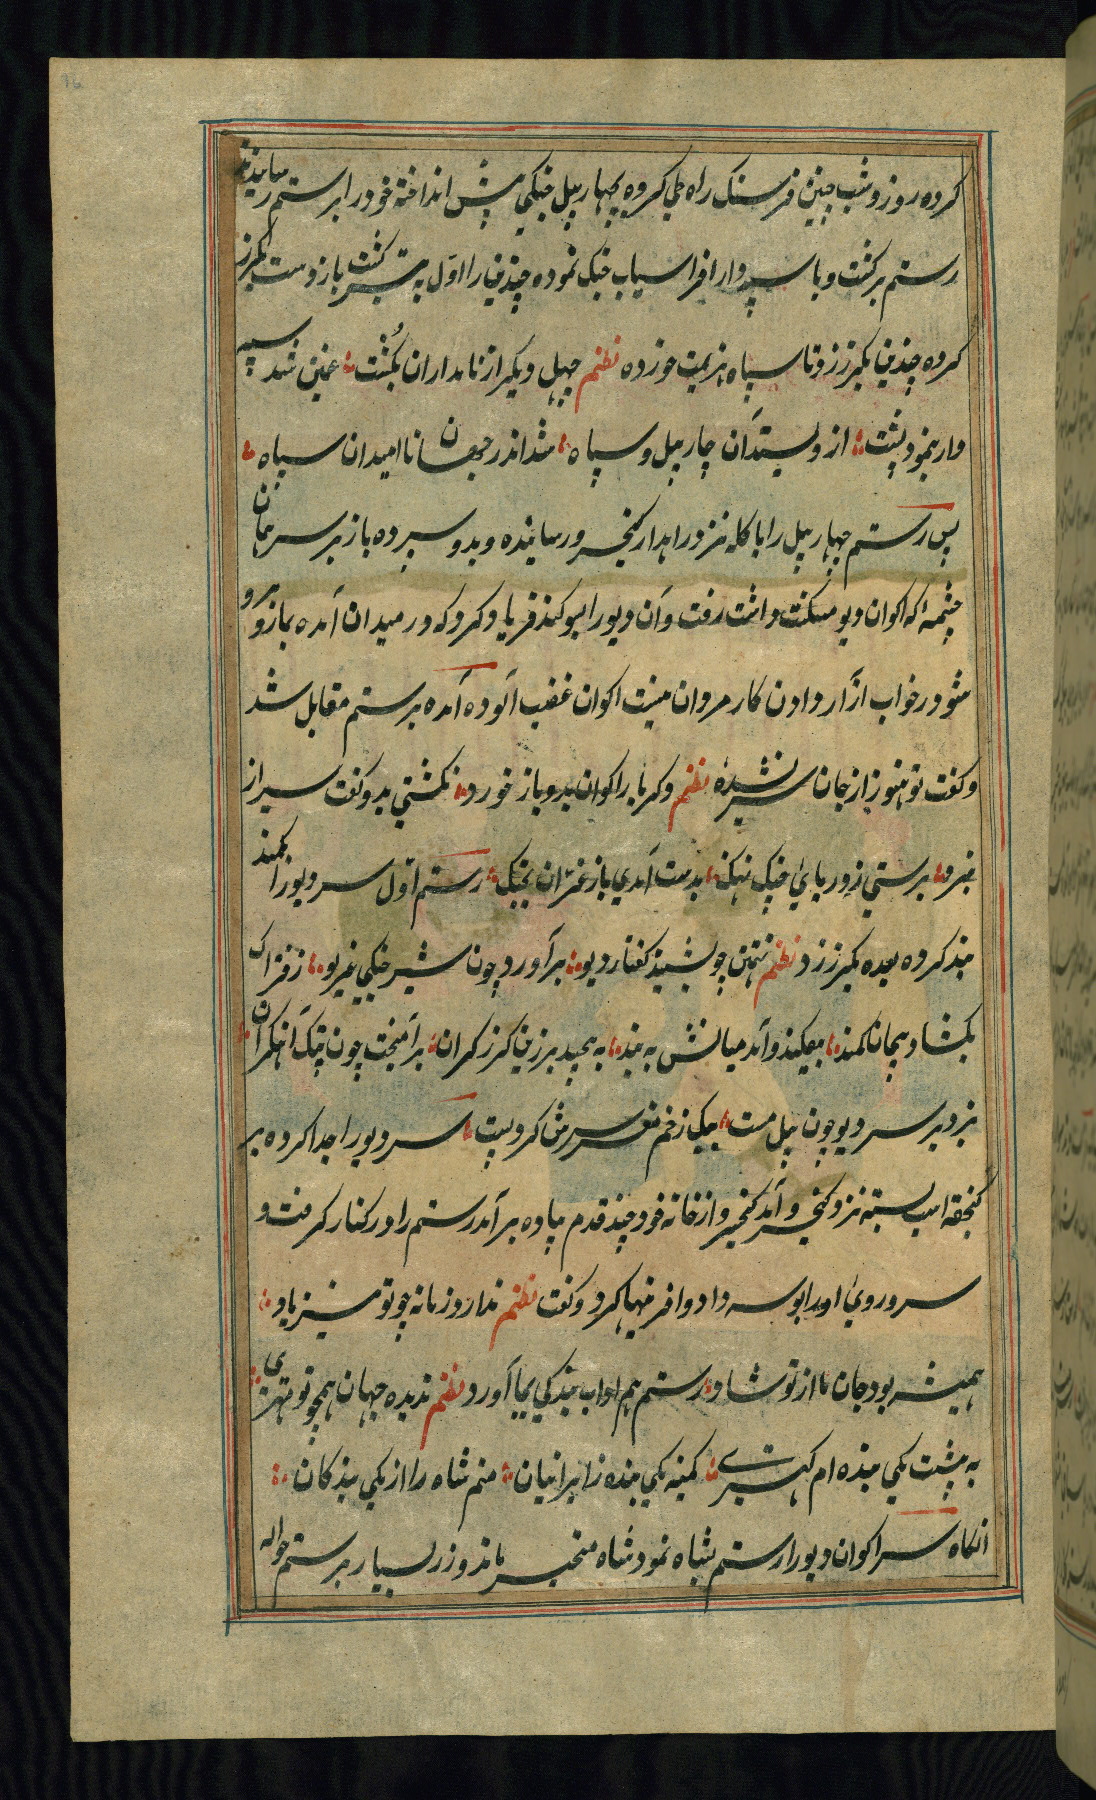 کرده روز و شب چنین فرسنک راه طی کرده چهار پیل جنکی پیش انداخته خود را بر رستم رسانیدند
رستم برکشت و با سپهدار افراسیاب جنک نموده چندین را اول به تیر کشت باز دست بکرز
کرده چندین بکرز زد تا سپاه هزیمت خورده نظم چهل و یکر از نامداران بکُشت غمین شد سپه
دار بنمود پشت ازو بستد آن چار پیل و سپاه شد اندر جهان ناامید آن سپاه
پس رستم چهار پیل را با کله نزد راهدار کیخسرو رسانیده و بدو سپرده باز بر سر همان
چشمه که اکوان دیو مسکنت داشت رفت و آن دیو را سوکند فریاد کرد که در میدان آمده بمن روبرو
شو در خواب آزار دادن کار مردان نیست اکوان غضب آلوده آمده برستم مقابل شد
و کفت تو هنوز از جان سیر نشدهٔ نظم دکر باره اکوان بدو باز خورد نکشتی بدو کفت سیر از
نبرد برستی ز دریای و چنک نهنک بدشت آمدی باز غران بجنک رستم اول سر دیو را بکمند
بند کرده بعده بکرز زد نظم تهمتن چو بشنید کفتار دیو برآورد چون شیر جنکی غریو ز فتراک
بکشاد پیچان کمند بیفکند و آمد میانش به بند به پیچید بر زین کرز کران برآمیخت چون پتک آهنکران
بزد بر سر دیو چون پیل مست بیک زخم مغز سرش کرد پست سر دیو را جدا کرده بر
کنجقه اسب بسته نزد کیخسرو آمد کیخسرو از خانه خود چند قدم پیاده برآمد رستم را در کنار کرفت و
سر و روی او را بوسه داد و آفرینها کرد و کفت نظم ندارد زمانه چو تو نیز یاد
همیشه بود جان ما از تو شاد رستم هم آداب بندکی بجا آورد نظم ندیده جهان همچو تو مهتری
به پیشت یکی بنده ام کهتری کمینه یکی بنده ز ایرانیان منم شاه را از یکی بندکان
انکاه سر اکوان دیو را رستم بشاه نمود شاه متحیر ماند و زر بسیار برستم حواله